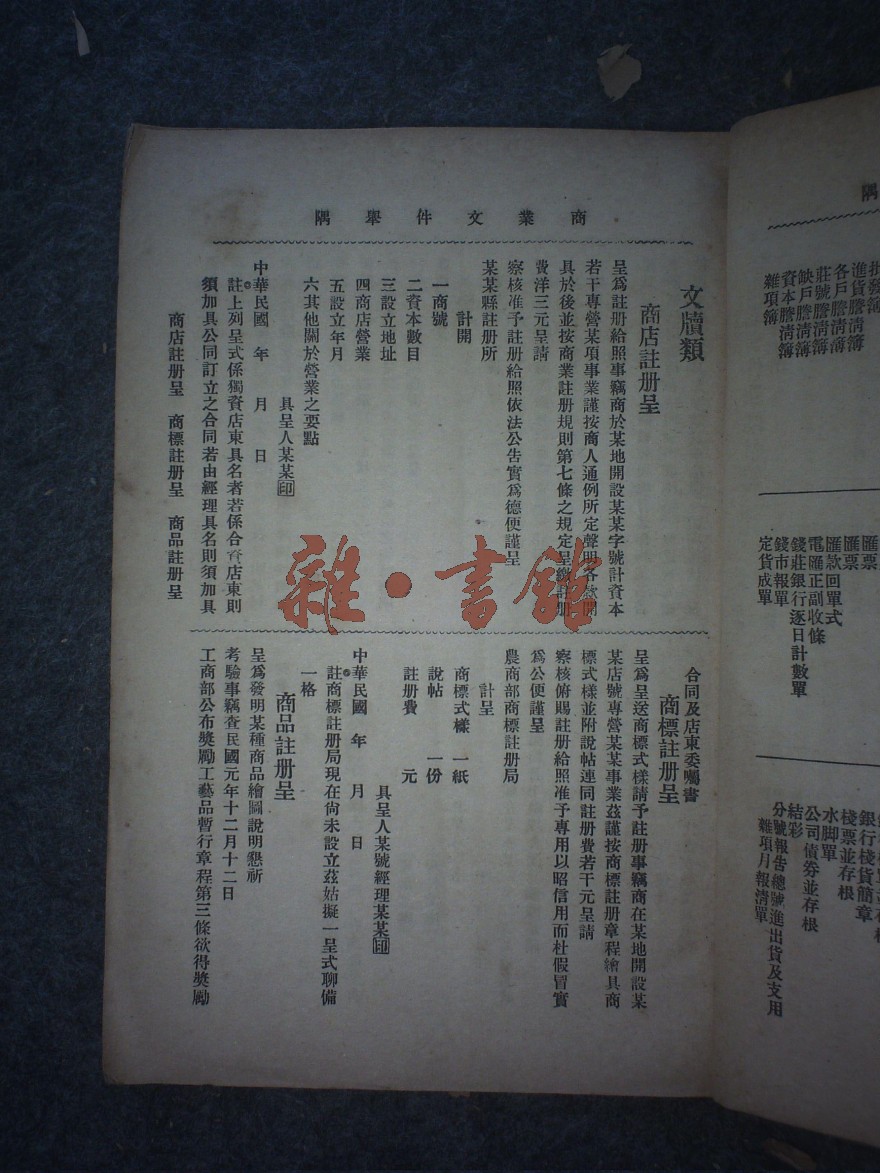 隅
批發簿
進貨謄清簿
各戶謄清簿
莊號謄清簿
缺戶謄清簿
資本謄清簿
雜項簿
匯票
匯票
匯款回單式
電匯正副收條
錢莊銀行逐日計數單
錢市報單
定貨成單
銀行棧貨簡章
棧票並存根
水脚單
公司債券並存根
結彩
分號報告總號進出貨及支用
雜項月報清單
商業文件舉隅
文牘類
商店註册呈
呈爲註册給照事竊商於某地開設某某字號計資本
若干專營某項事業謹按商人通例所定聲明各款開
具於後並按商業註册規則第七條之規定呈繳註册
費洋三元呈請
察核准予註册給照依法公告實爲德便謹呈
某某縣註册所
計開
一商號
二資本數目
三設立地址
四商店營業
五設立年月
六其他關於營業之要點
具呈人某某印
中華民國 年 月 日
註上列呈式係獨資店東具名者若係合資店東則
須加具公同訂立之合同若由經理具名則須加具
合同及店東委囑書
商標註册呈
呈爲呈送商標式樣請予註册事竊商在某地開設某
某店號專營某某事業茲謹按商標註册章程繪具商
標式樣並附說帖連同註册費若干元呈請
察核俯賜註册給照准予專用以昭信用而杜假冒實
爲公便謹呈
農商部商標註册局
計呈
商標式樣 一紙
說帖 一份
註册費 元
具呈人某號經理某某印
中華民國 年 月 日
註商標註册局現在尚未設立茲姑擬一呈式聊備
一格
商品註册呈
呈爲發明某種商品繪圖說明懇祈
考驗事竊查民國元年十二月十二日
工商部公布奬勵工藝品暫行章程第三條欲得奬勵
商店註册呈 商標註册呈 商品註册呈
雜·書館